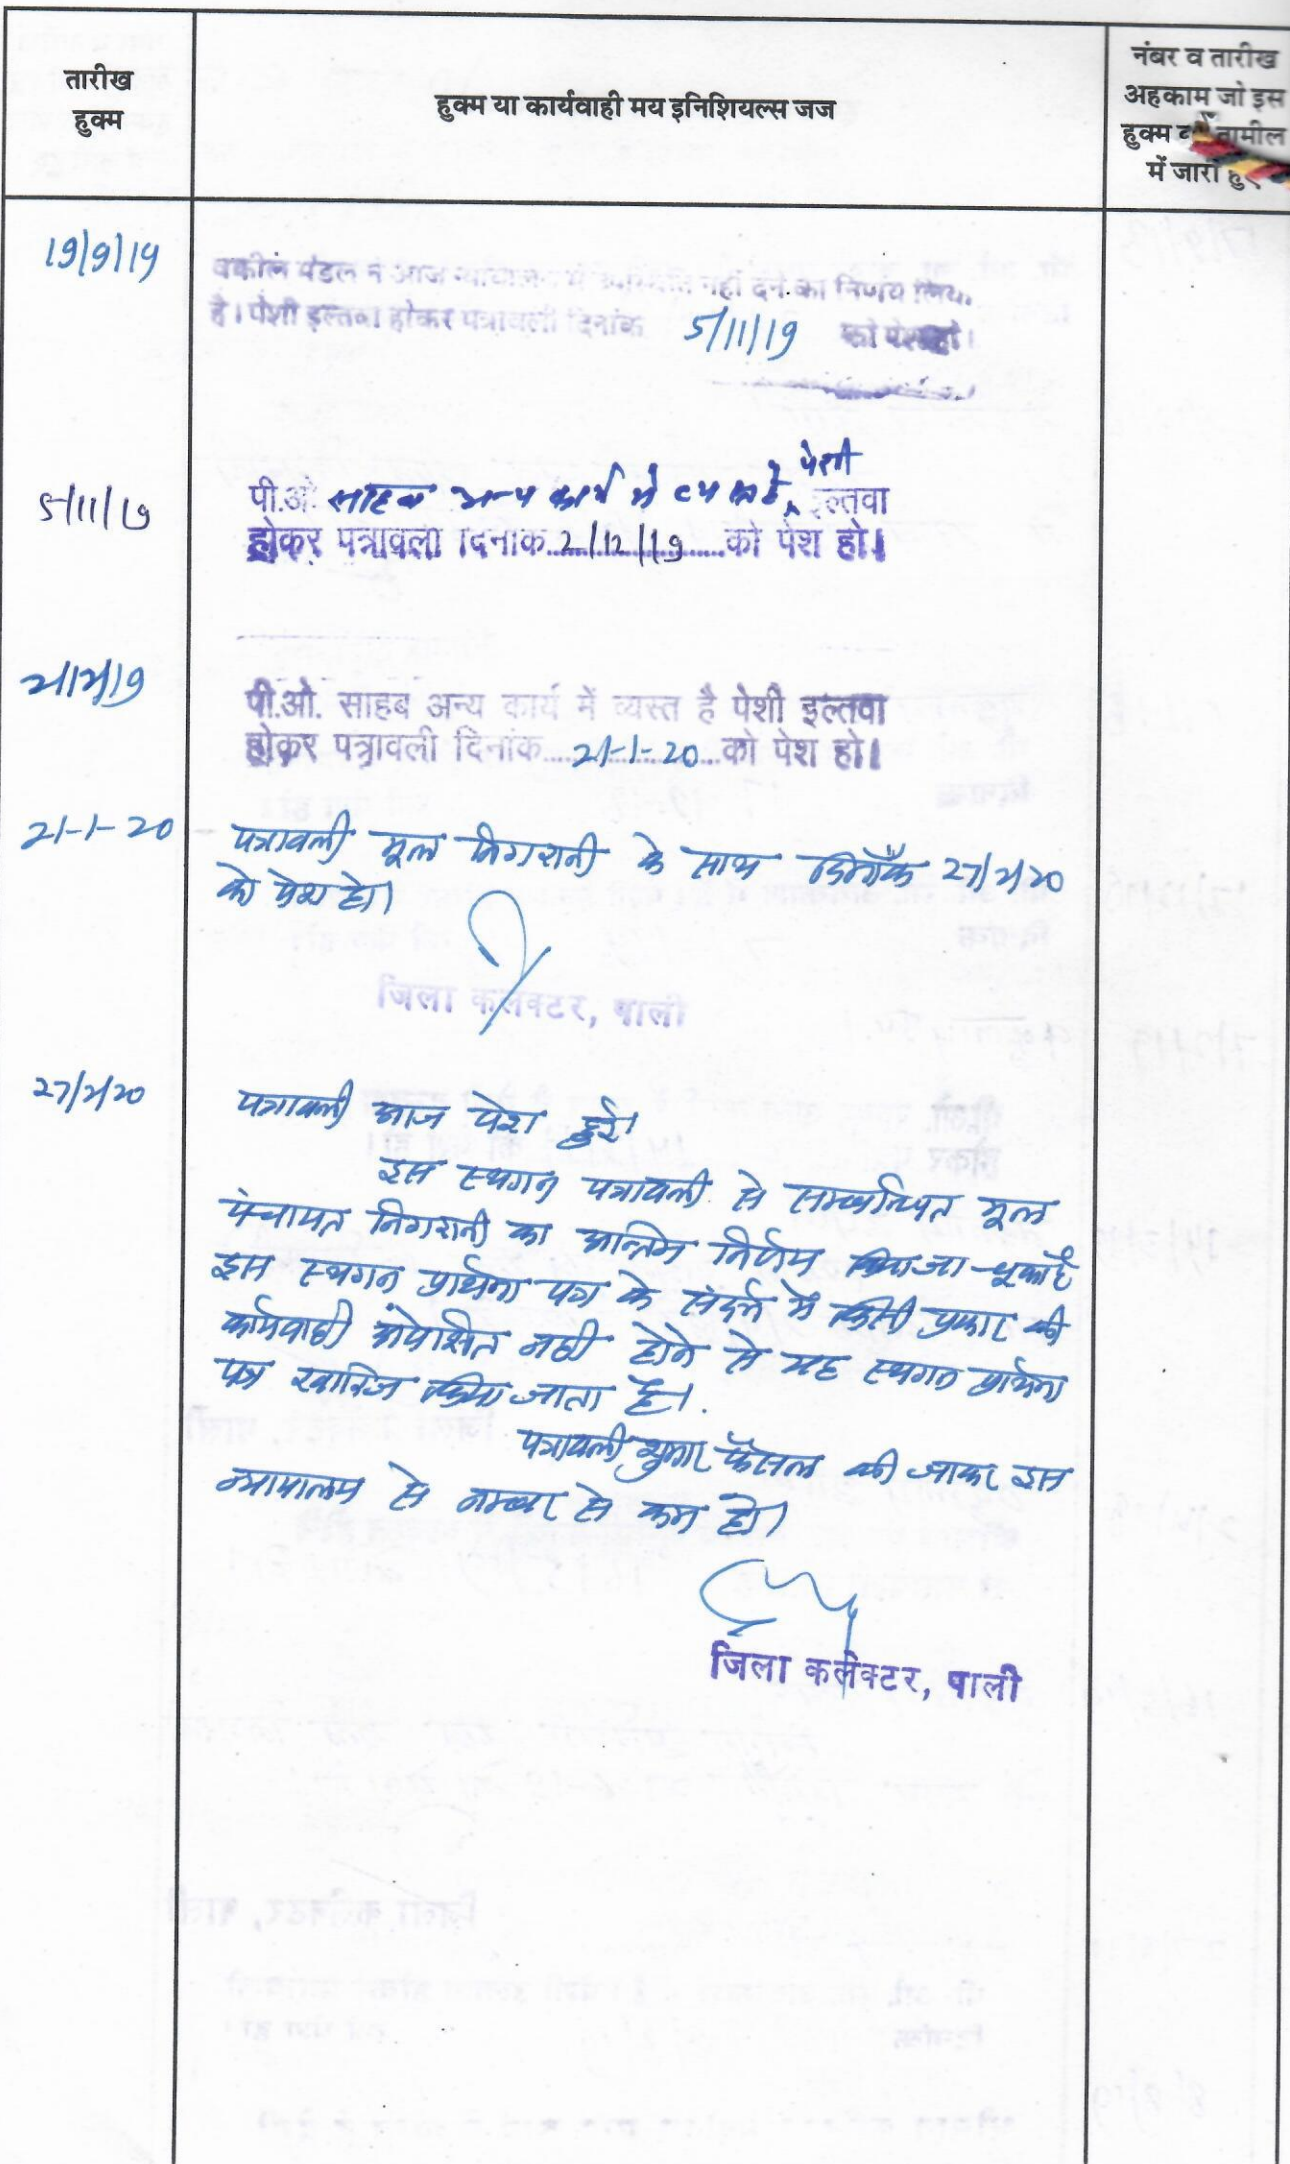 तारीख
हुक्म
हुक्म या कार्यवाही मय इनिशियल्स जज
नंबर व तारीख
अहकाम जो इस
हुक्म की तामील
में जारी हुए
19/9/19
वकील मंडल ने आज न्यायालय में उपस्थिति नहीं देने का निर्णय लिया
है। पेशी इल्तवा होकर पत्रावली दिनांक 5/11/19 को पेश हो।
5/11/19
पेशी
पी.ओ. साहब अन्य कार्य में व्यस्त है इल्तवा
होकर पत्रावली दिनांक 2/12/19 को पेश हो।
2/12/19
पी.ओ. साहब अन्य कार्य में व्यस्त है पेशी इल्तवा
होकर पत्रावली दिनांक 21-1-20 को पेश हो।
21-1-20
पत्रावली मूल निगरानी के साथ दिनाँक 27/2/20
को पेश हो।
जिला कलेक्टर, पाली
27/2/20
पत्रावली आज पेश हुई।
इस स्थगन पत्रावली से सम्बन्धित मूल
पंचायत निगरानी का अन्तिम निर्णय किया जा चूका है
इस स्थगन प्रार्थना पत्र के संदर्भ में किसी प्रकार की
कार्यवाही अपेक्षित नही होने से यह स्थगन प्रार्थना
पत्र खारिज किया जाता है।
पत्रावली शुमार फैसल की जाकर इस
न्यायालय से नम्बर से कम हो।
जिला कलेक्टर, पाली